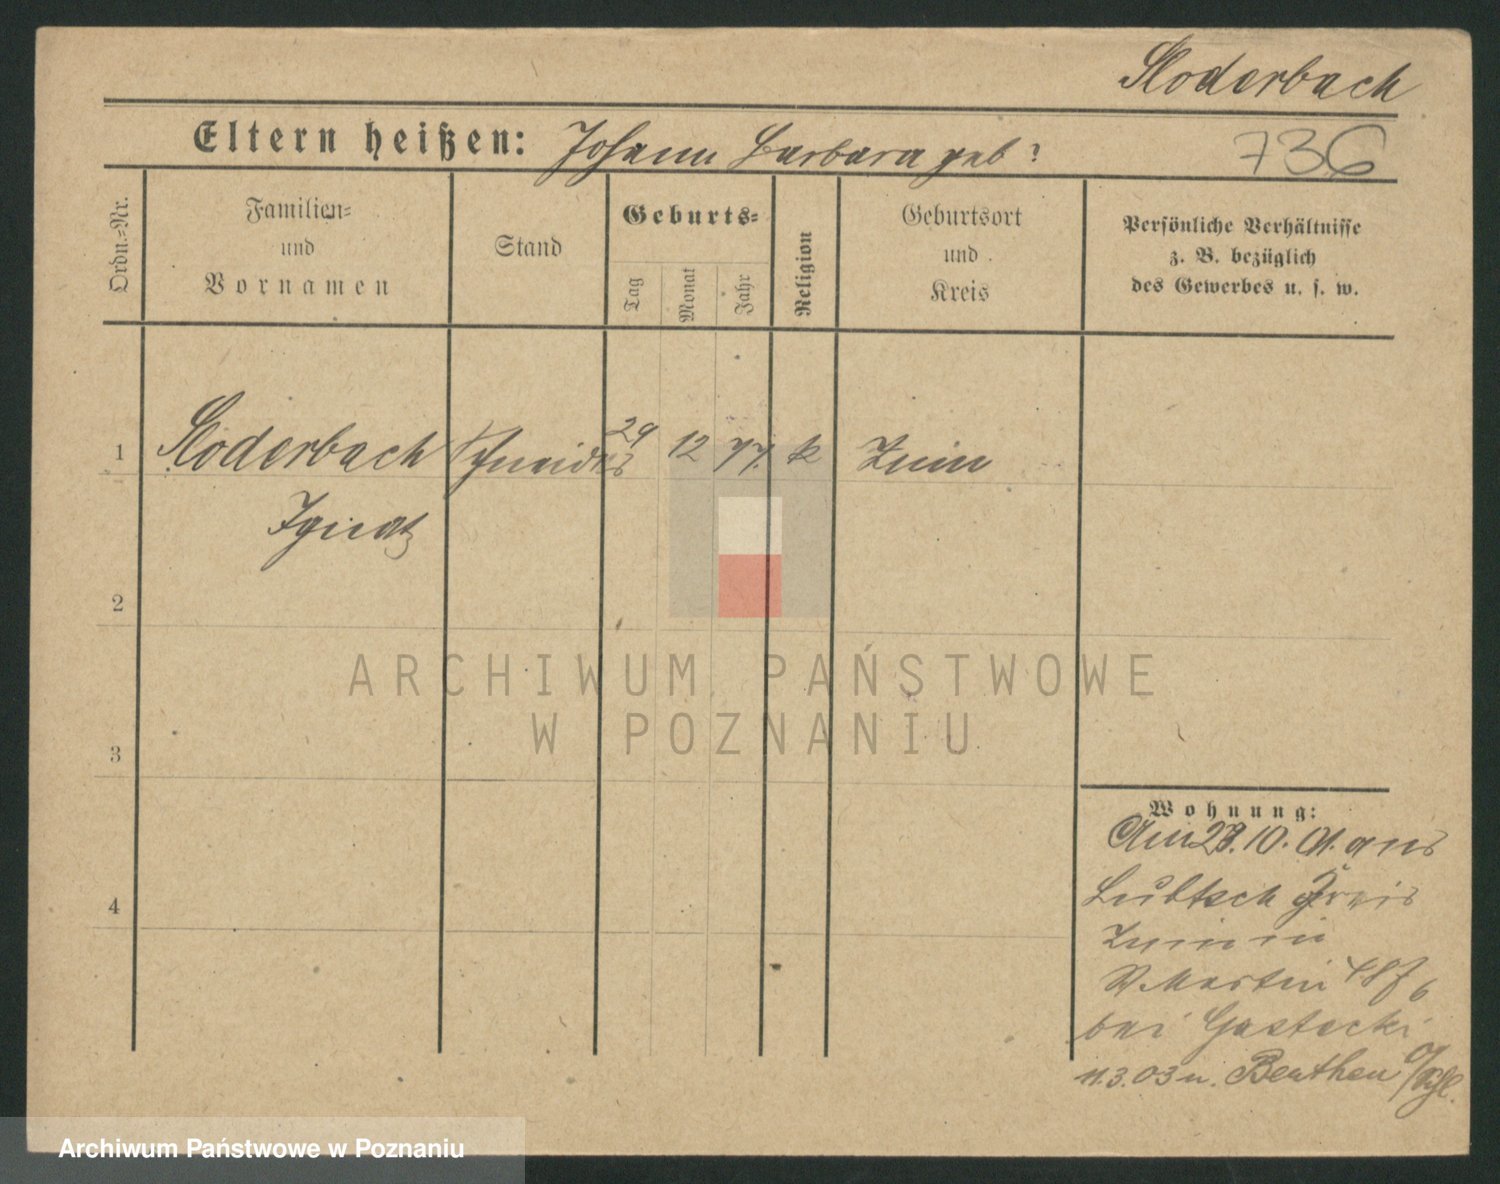 Sloderbach
Eltern heißen: Johann Barbara geb ?
736
Ordn.=Nr.
Familien=
und
Vornamen
Stand
Geburts=
Tag
Monat
Jahr
Religion
Geburtsort
und
Kreis
Persönliche Verhältnisse
z. B. bezüglich
des Gewerbes u. s. w.
1 Sloderbach Schneider 29 12 77. k Znin
Ignatz
2
ARCHIWUM PAŃSTWOWE
W POZNANIU
3
Wohnung:
Am 28.10.01. aus
4
Lubtsch Kreis
Znin in
St. Martin 48
bei Gastecki
11.3.03 n. Beuthen O/Schl.
Archiwum Państwowe w Poznaniu